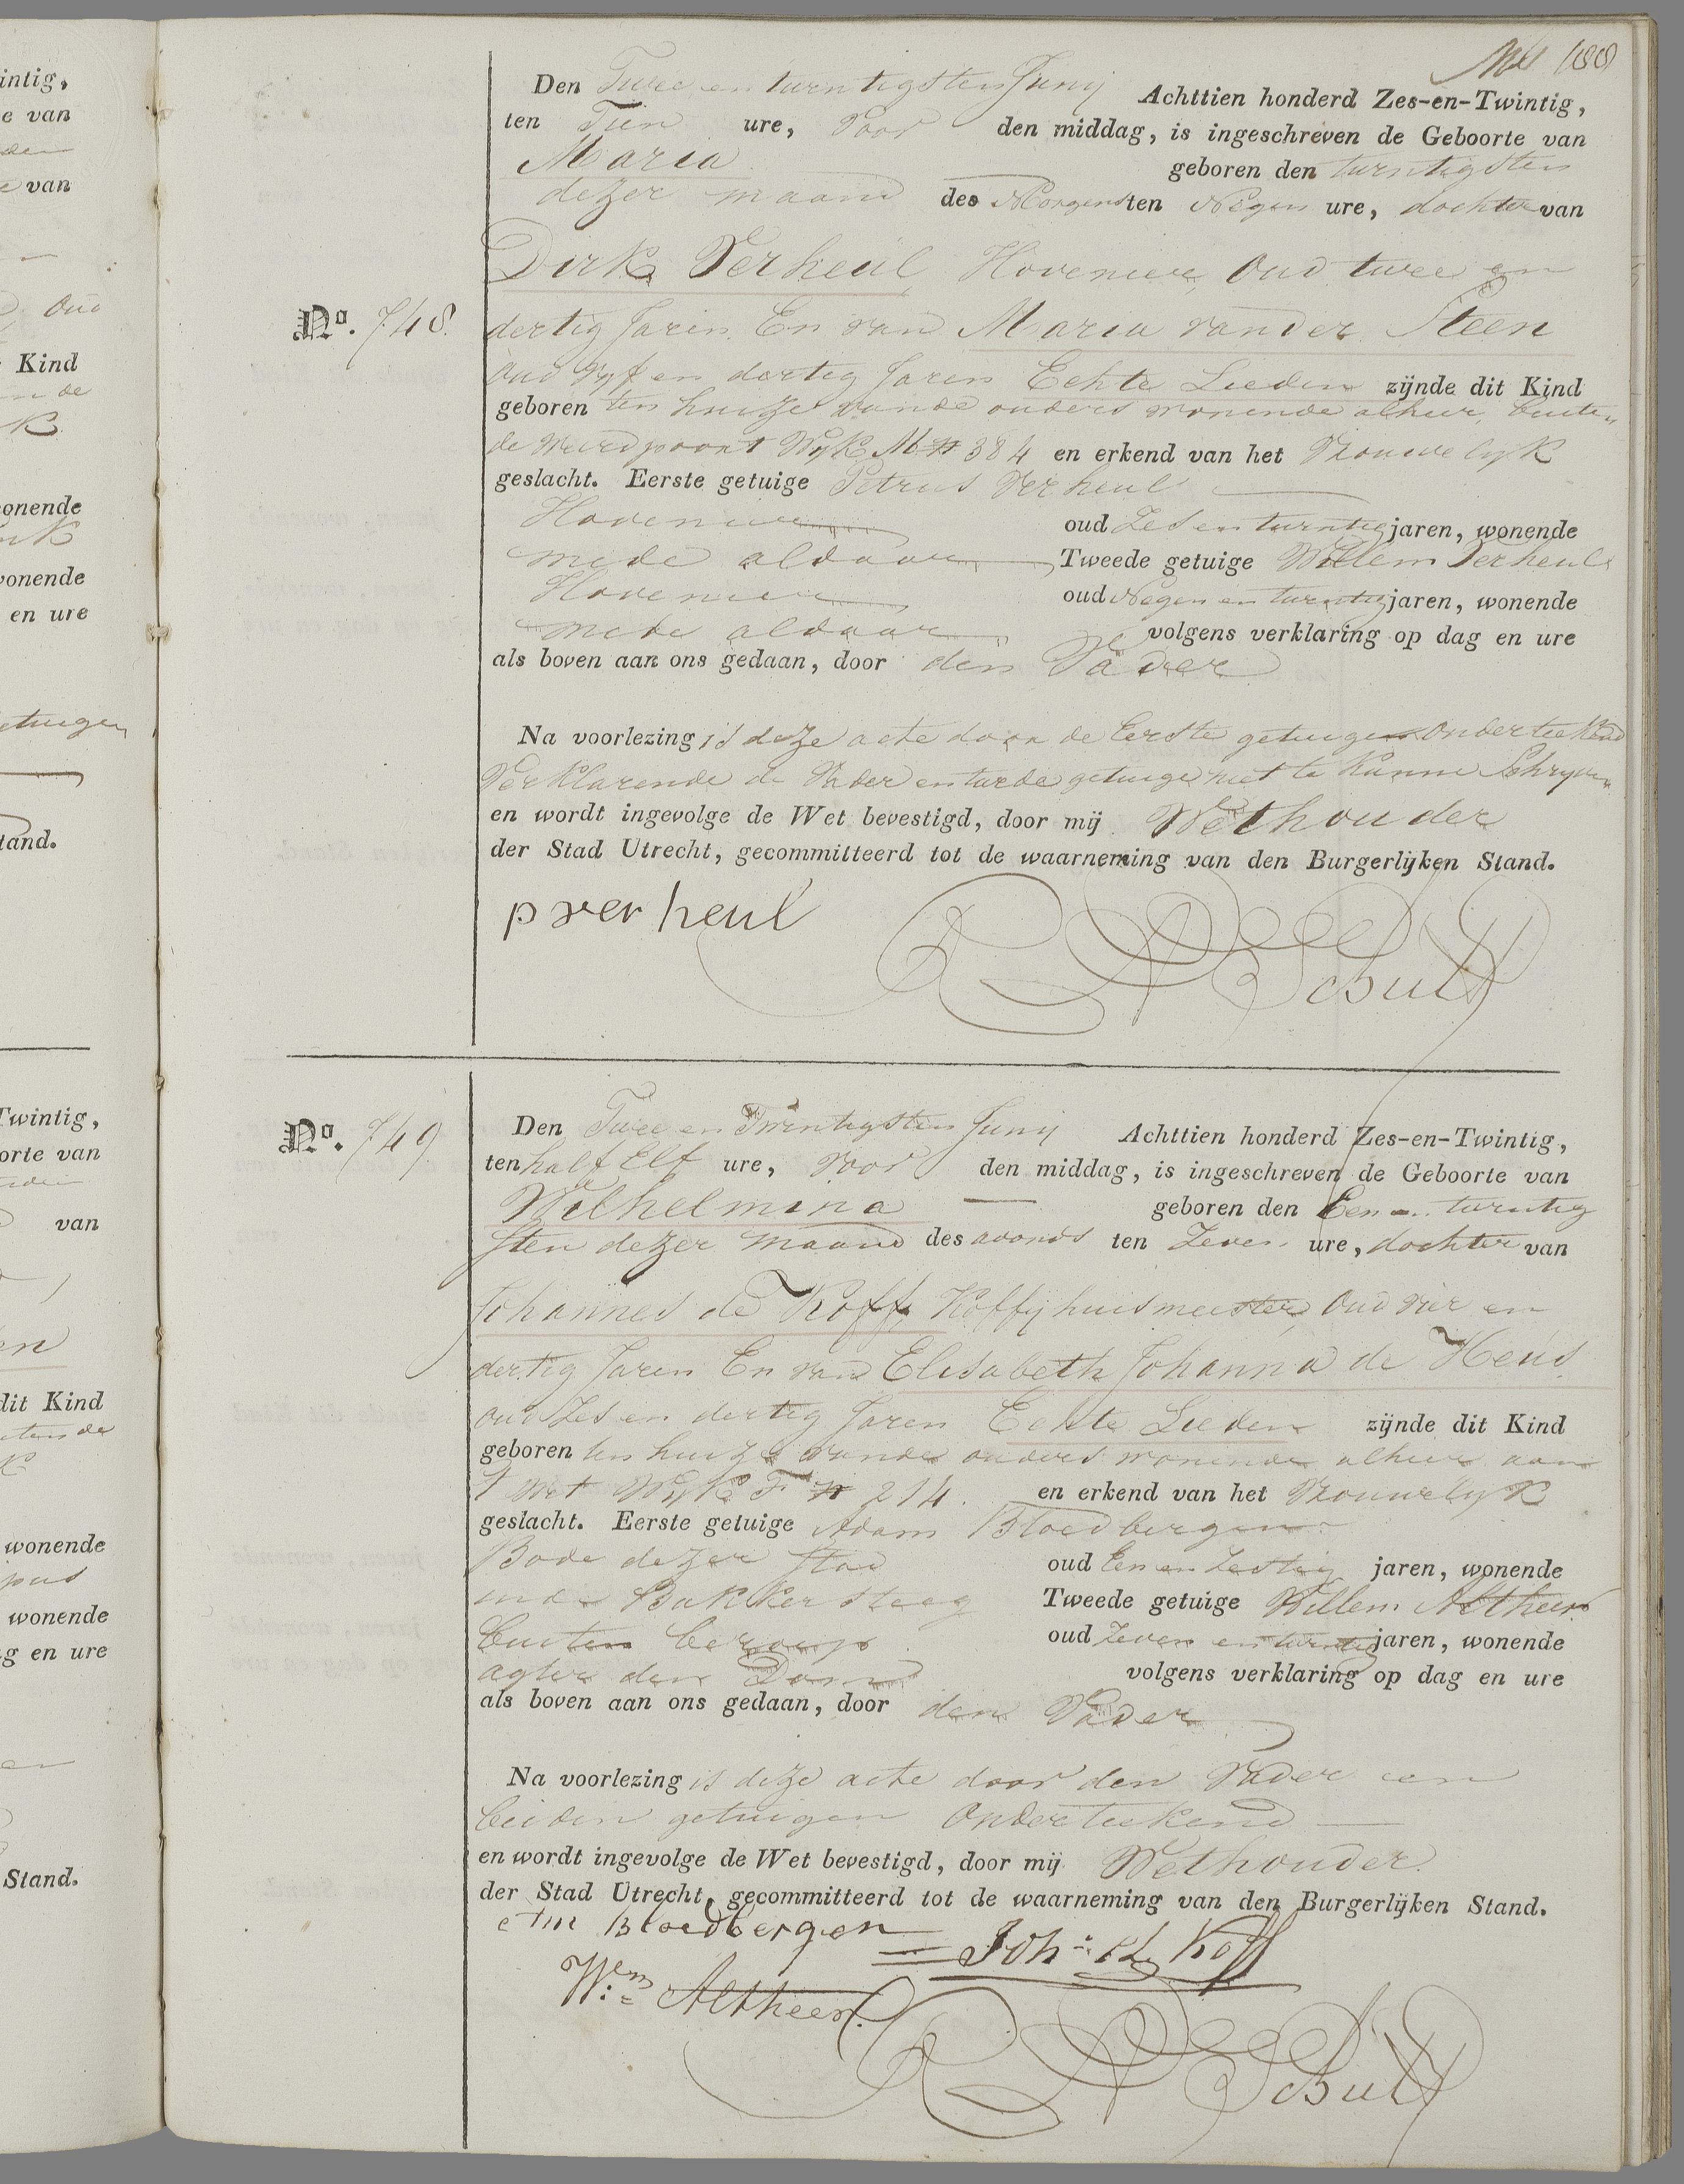 intig,
e van
den
e van
oud
Kind
in de
K
wonende
wonende
en ure
getuigen
tand.
Twintig,
orte van
van
en
dit Kind
wonende
wonende
g en ure
Stand.
188
Den Twee en twintigsten Junij Achttien honderd Zes-en-Twintig,
ten Tien ure, voor den middag, is ingeschreven de Geboorte van
Maria geboren den twintigsten
dezer maand des Morgens ten Negen ure, dochter van
Dirk Verheul, Hovenier, oud twee en
No. 748. dertig Jaren. En van Maria vander Steen
oud vyf en dertig Jaren Echte Lieden zijnde dit Kind
geboren ten huize vande ouders wonende alhier, buiten
de Weerdpoort Wyk M N 384 en erkend van het Vrouwelyk
geslacht. Eerste getuige Petrus Verheul
Hovenier oud Zes en twintig jaren, wonende
mede aldaar Tweede getuige Willem Verheul
Hovenier oud Negen en twintig jaren, wonende
mede aldaar volgens verklaring op dag en ure
als boven aan ons gedaan, door den Vader
Na voorlezing is deze acte door de Eerste getuigen onderteekend
Verklarende de Vader en twede getuige niet te kunne Schryven
en wordt ingevolge de Wet bevestigd, door mij Wethouder
der Stad Utrecht, gecommitteerd tot de waarneming van den Burgerlijken Stand.
p verheul
No. 749 Den Twee en Twintigsten Junij Achttien honderd Zes-en-Twintig,
ten half Elf ure, voor den middag, is ingeschreven de Geboorte van
Wilhelmina geboren den Een en twintig
sten dezer maand des avonds ten Zeven ure, dochter van
Johannes de Koff Koffijhuismeester, oud vier en
dertig Jaren En van Elisabeth Johanna de Heus
oud Zes en dertig Jaren Echte Lieden zijnde dit Kind
geboren ten huize vande ouders wonende alhier aan
t Wet Wyk F N 214. en erkend van het Vrouwelyk
geslacht. Eerste getuige Adam Bloedbergen
Bode dezer stad oud Een en Zestig jaren, wonende
inde Bakkersteeg Tweede getuige Willem Altheer
buiten beroep oud Zeven en twintig jaren, wonende
agter den Dom volgens verklaring op dag en ure
als boven aan ons gedaan, door den Vader
Na voorlezing is deze acte door den Vader en
beiden getuigen onderteekend
en wordt ingevolge de Wet bevestigd, door mij Wethouder
der Stad Utrecht, gecommitteerd tot de waarneming van den Burgerlijken Stand.
Bloedbergen
Joh: de Koff
Wm Altheer